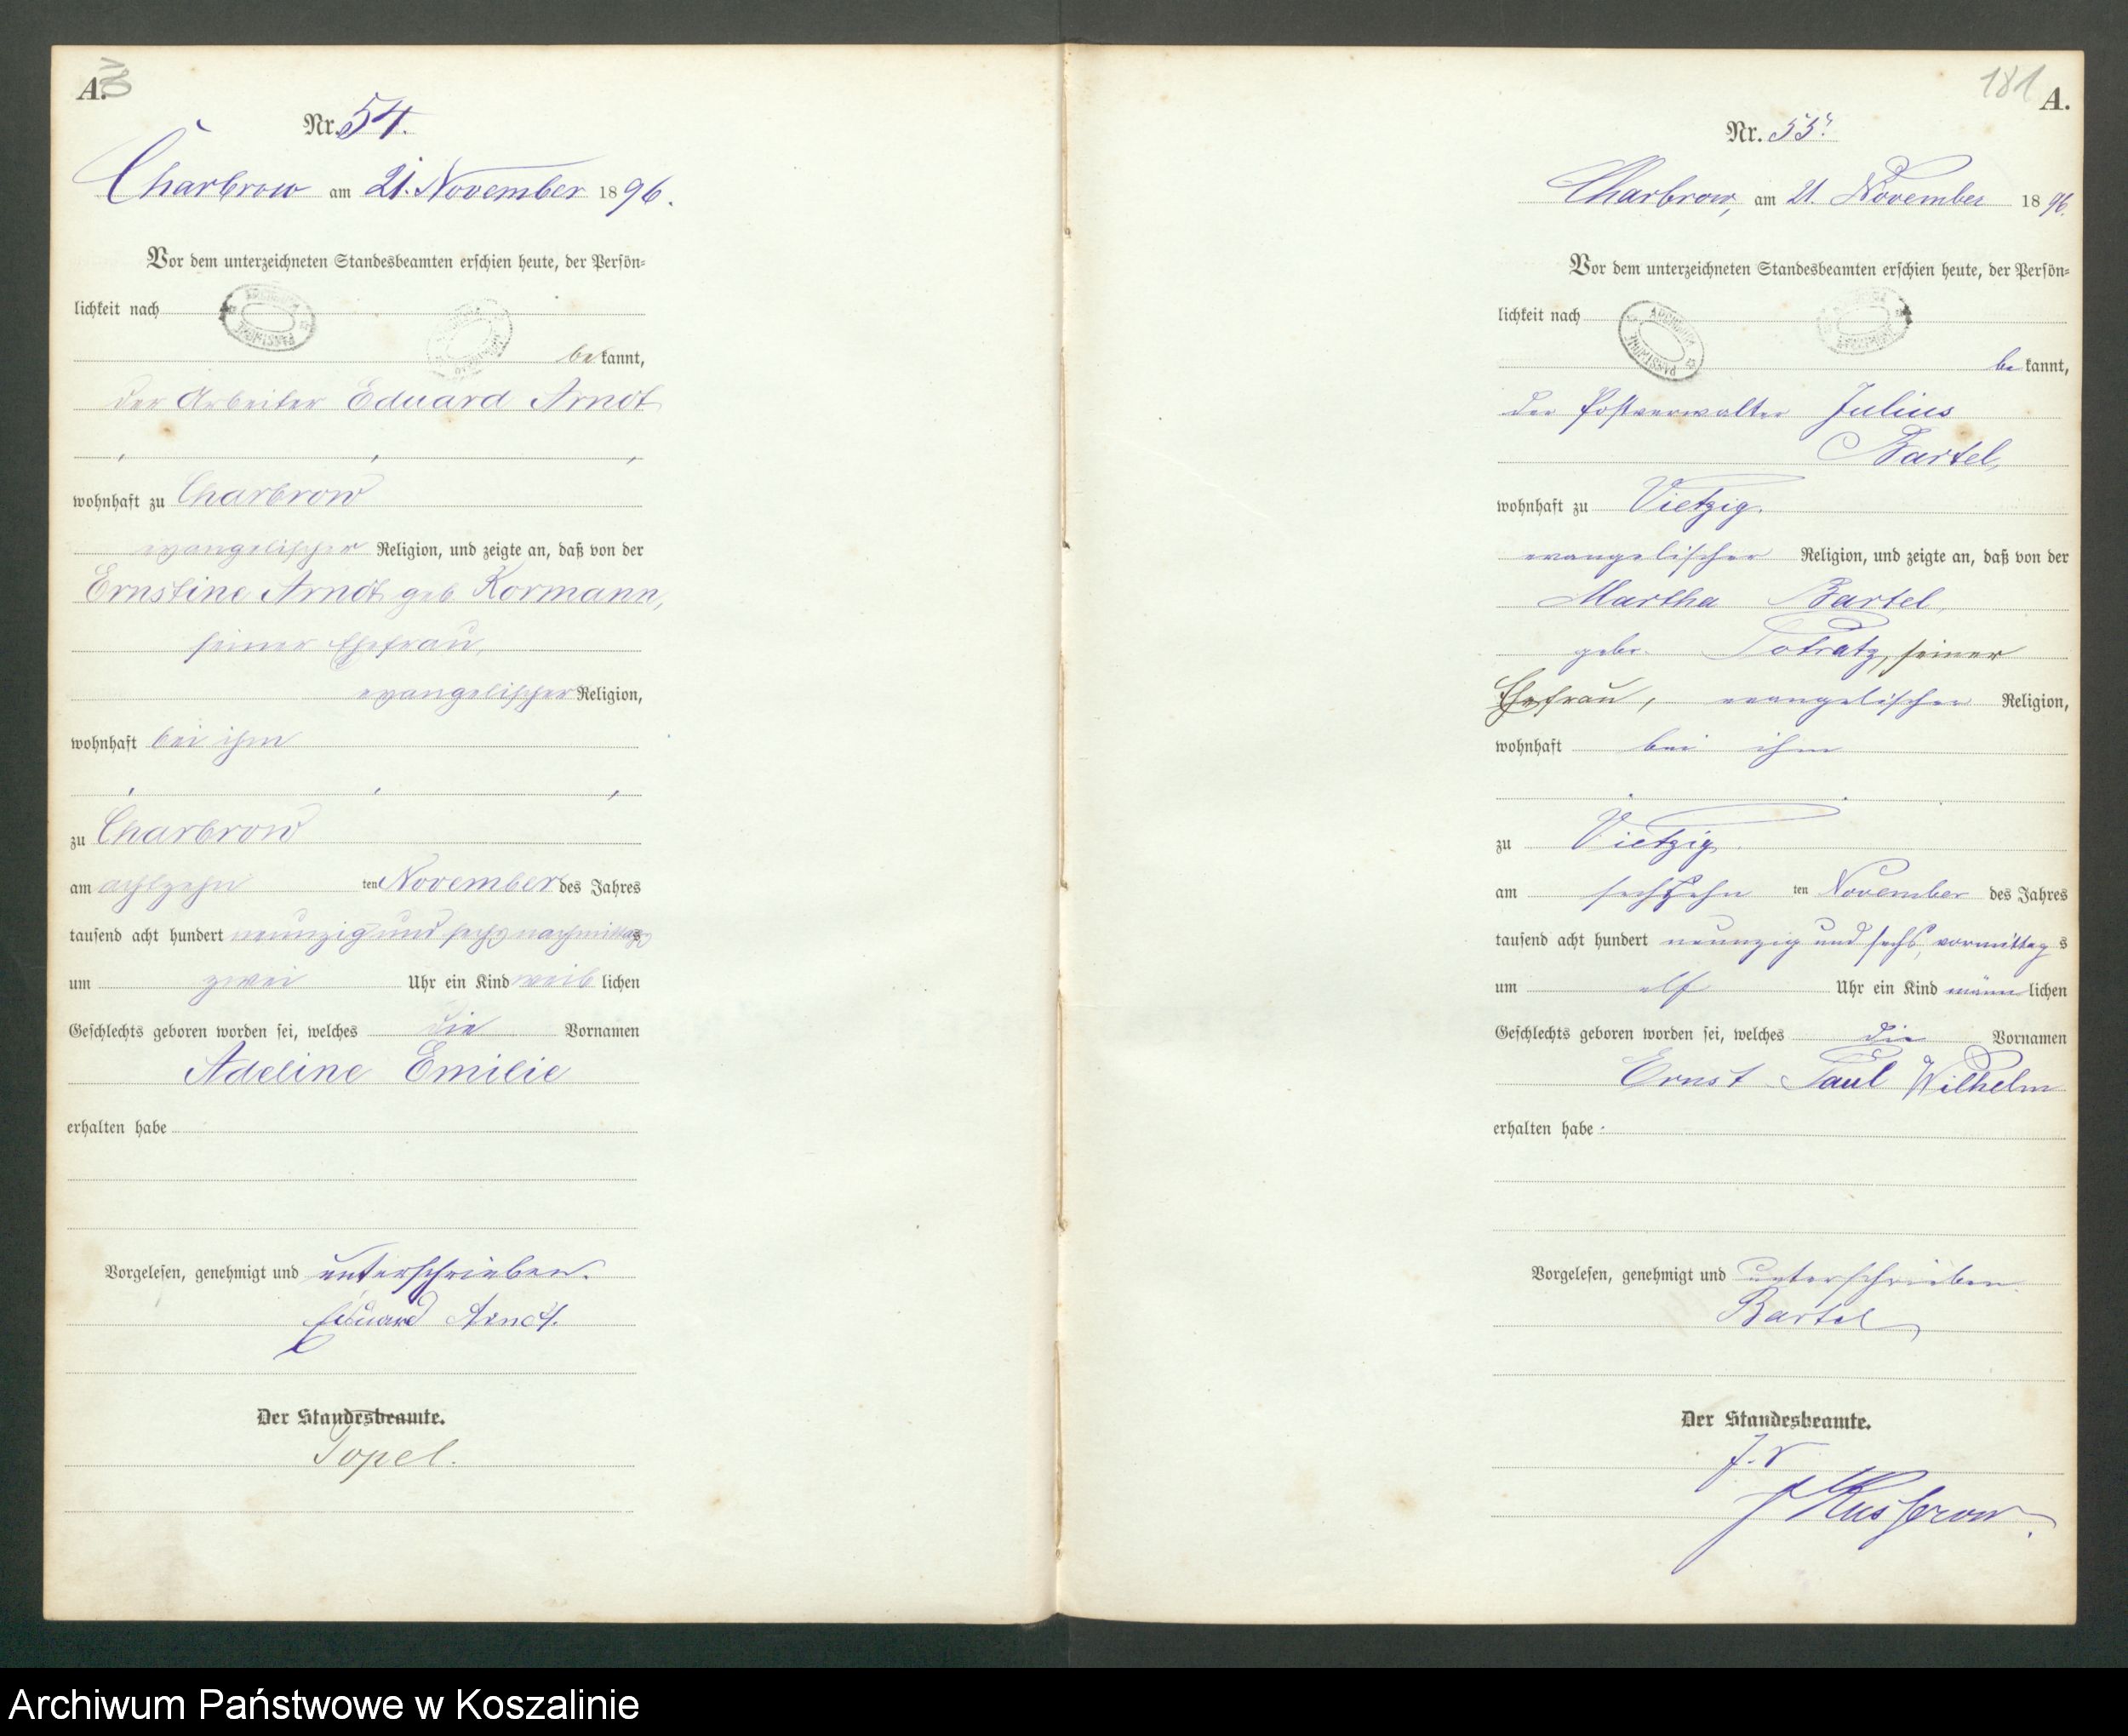 A.
Nr. 54.
Charbrow am 21. November 1896.
Vor dem unterzeichneten Standesbeamten erschien heute, der Persön-
lichkeit nach
bekannt,
der Arbeiter Eduard Arndt
wohnhaft zu Charbrow
evangelischer Religion, und zeigte an, daß von der
Ernstine Arndt geb Kormann,
seiner Ehefrau,
evangelischer Religion,
wohnhaft bei ihm
zu Charbrow
am achtzehn ten November des Jahres
tausend acht hundert neunzig und sechs nachmittags
um zwei Uhr ein Kind weiblichen
Geschlechts geboren worden sei, welches die Vornamen
Adeline Emilie
erhalten habe
Vorgelesen, genehmigt und unterschrieben.
Eduard Arndt.
Der Standesbeamte.
Topel.
181 A.
Nr. 55.
Charbrow, am 21. November 1896.
Vor dem unterzeichneten Standesbeamten erschien heute, der Persön-
lichkeit nach
bekannt,
der Postverwalter Julius
Bartel,
wohnhaft zu Vietzig.
evangelischer Religion, und zeigte an, daß von der
Martha Bartel,
gebr. Potratz, seiner
Ehefrau, evangelischer Religion,
wohnhaft bei ihm
zu Vietzig.
am sechzehn ten November des Jahres
tausend acht hundert neunzig und sechs, vormittags
um elf Uhr ein Kind männlichen
Geschlechts geboren worden sei, welches die Vornamen
Ernst Paul Wilhelm
erhalten habe.
Vorgelesen, genehmigt und unterschrieben.
Bartel
Der Standesbeamte.
J. V
Kusserow.
Archiwum Państwowe w Koszalinie